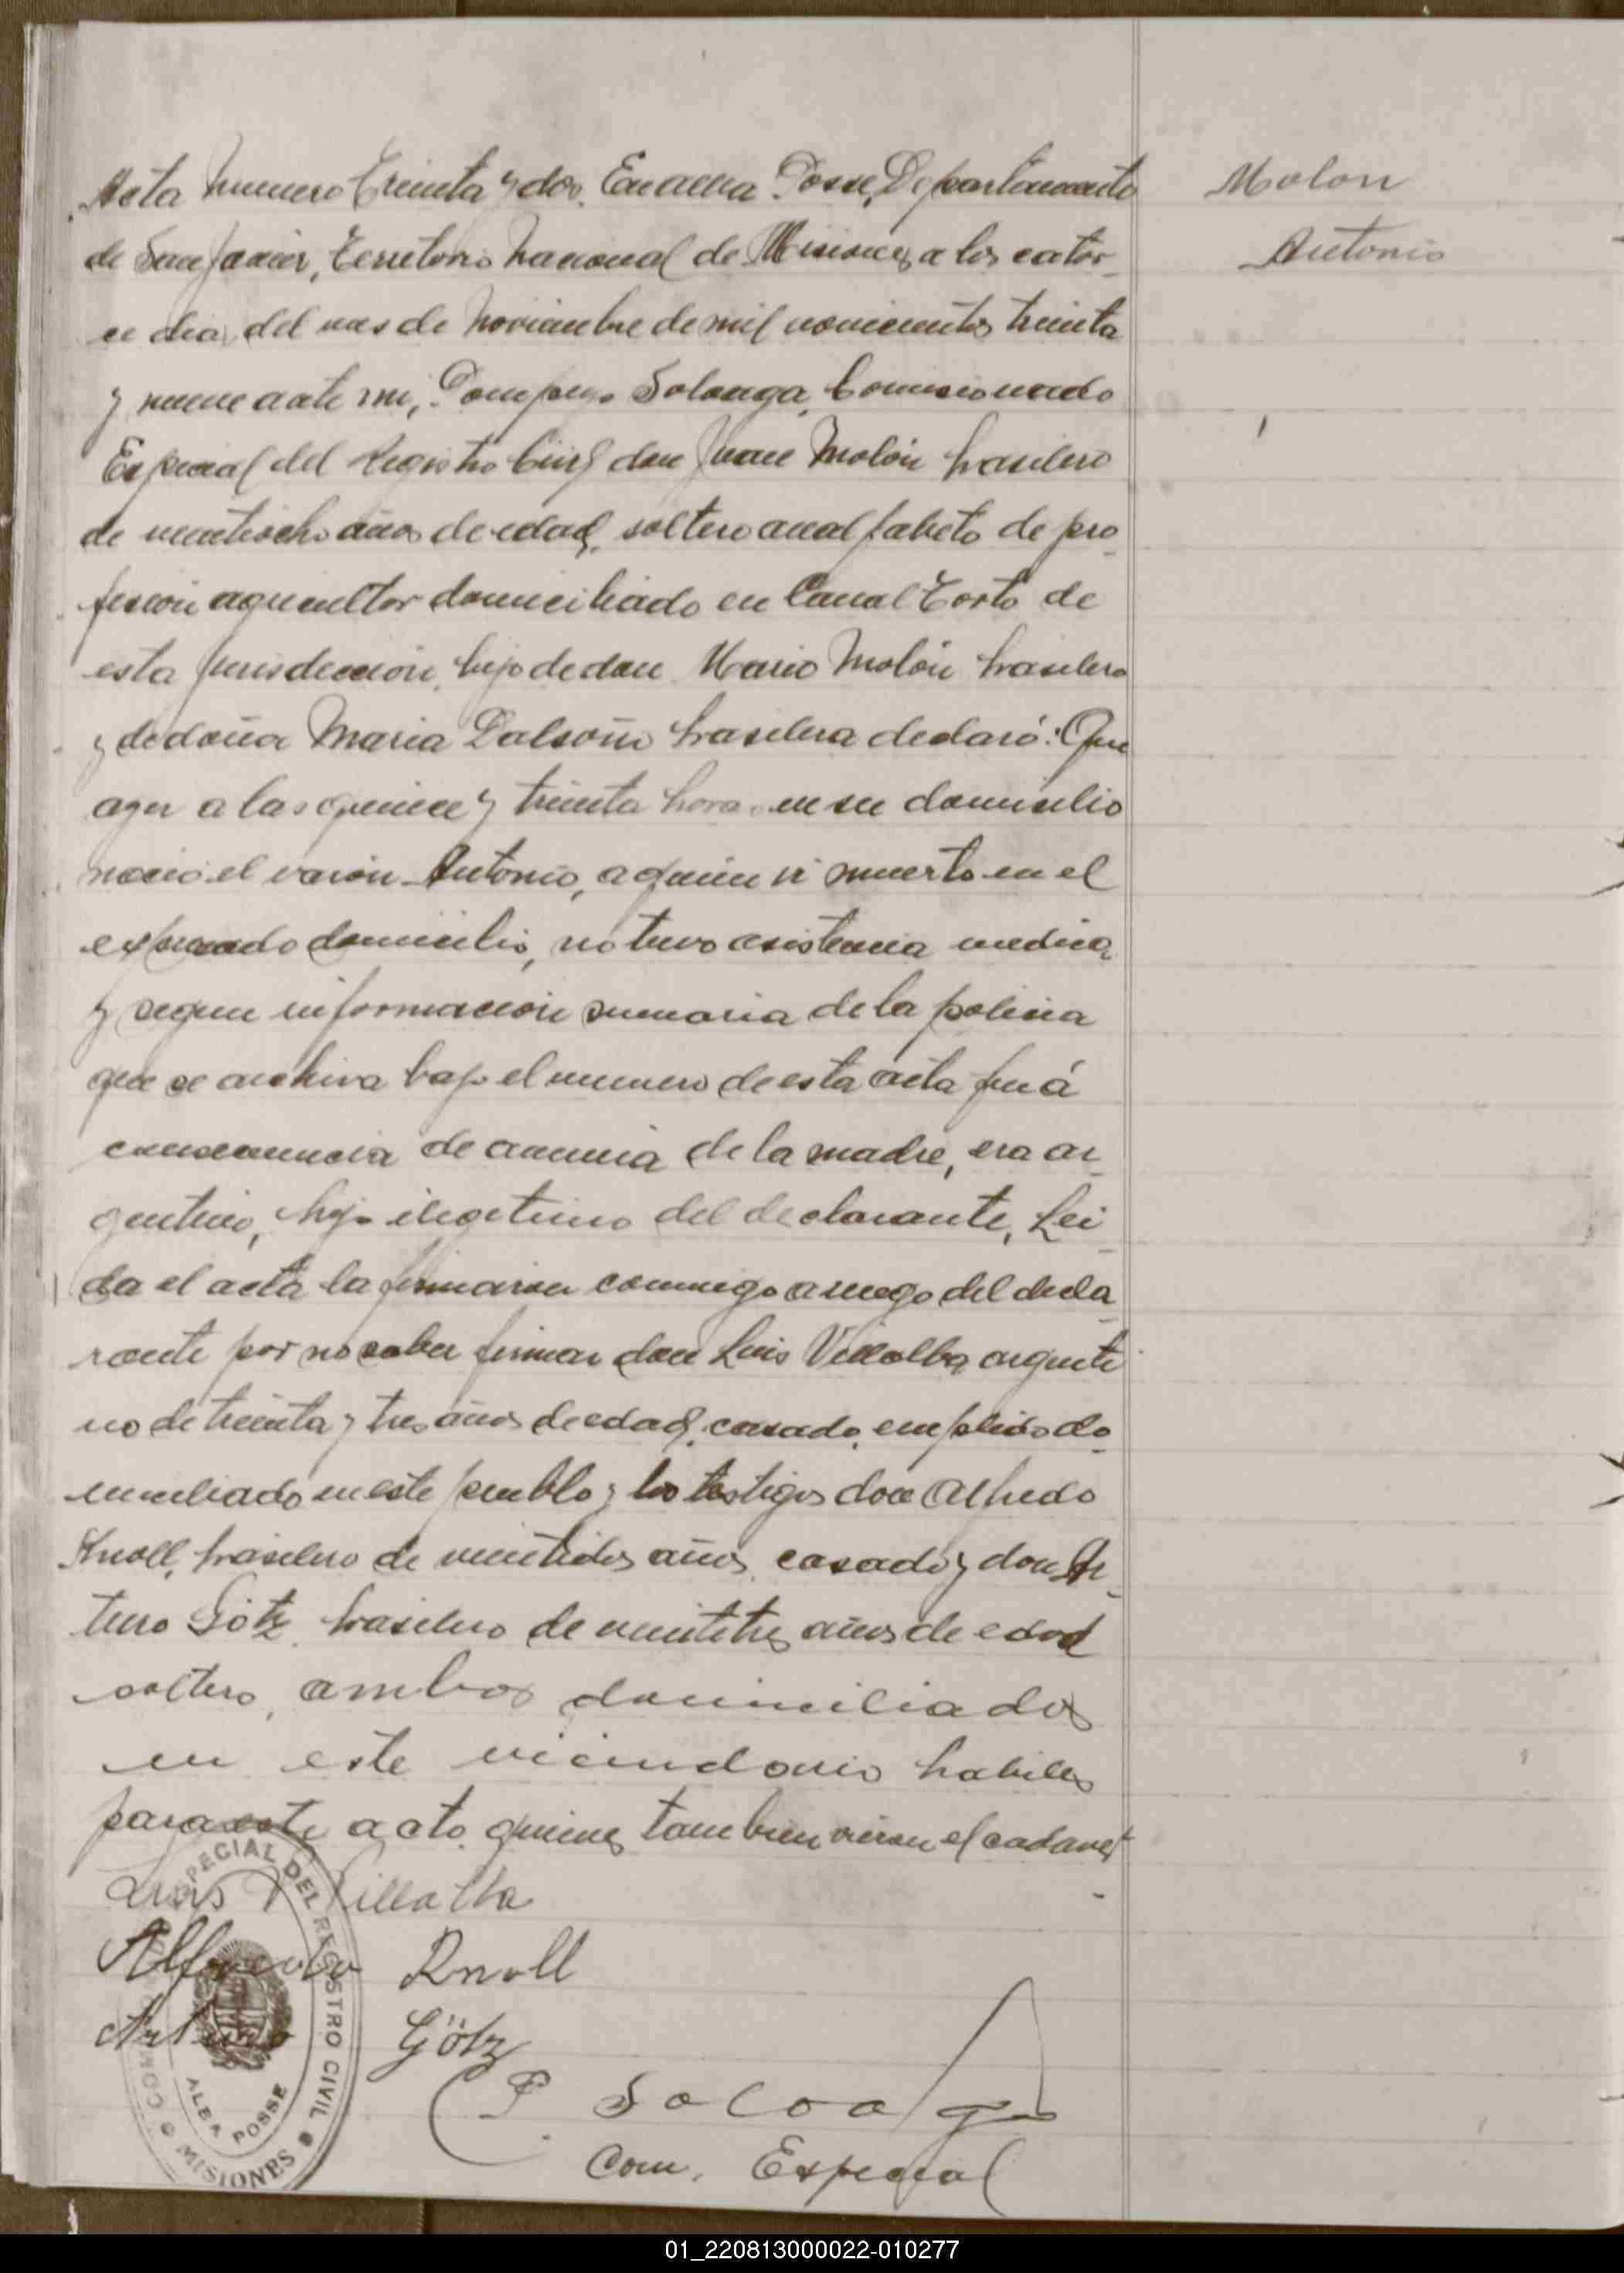 Acta numero treinta y dos. En Alba Posse, Departamento
Molon
de San Javier, territorio nacional de Misiones, a los cator-
Antonio
ce dias del mes de noviembre de mil novecientos treinta
y nueve ante mi, Pompeyo Soloaga, Comisionado
Especial del Registro Civil don Juan Molón brasilero
de veintiocho años de edad, soltero analfabeto de pro-
fesion agricultor domiciliado en Canal Torto de
esta jurisdeccion, hijo de don Mario Molón brasilero
y de doña Maria brasilera declaró: Que
ayer a las quince y treinta horas en su domicilio
nació el varon Antonio, a quien vi muerto en el
expresado domicilio, no tuvo asistencia medica,
y segun informacion sumaria de la policia
que se archiva bajo el numero de esta acta fué á
consecuencia de anemia de la madre, era ar-
gentino, hijo ilegitimo del declarante, Lei-
da el acta la firmaron conmigo a ruego del decla
rante por no saber firmar don Luis Villalba argenti
no de treinta y tres años de edad, casado, empleado do-
miciliado en este pueblo y los testigos don Alfredo
Knoll, brasilero de veintidos años, casado y don Ar-
turo Götz, brasilero de veintitres años de edad
soltero, ambos domiciliados
en este vecindario habiles
para este acto, quienes tambien vieron el cadaver
Luis Villalba
Alfredo Knoll
Arturo Götz
P Soloaga
Com. Especial
ESPECIAL DEL REGISTRO CIVIL
ALBA POSSE
MISIONES
01_220813000022-010277